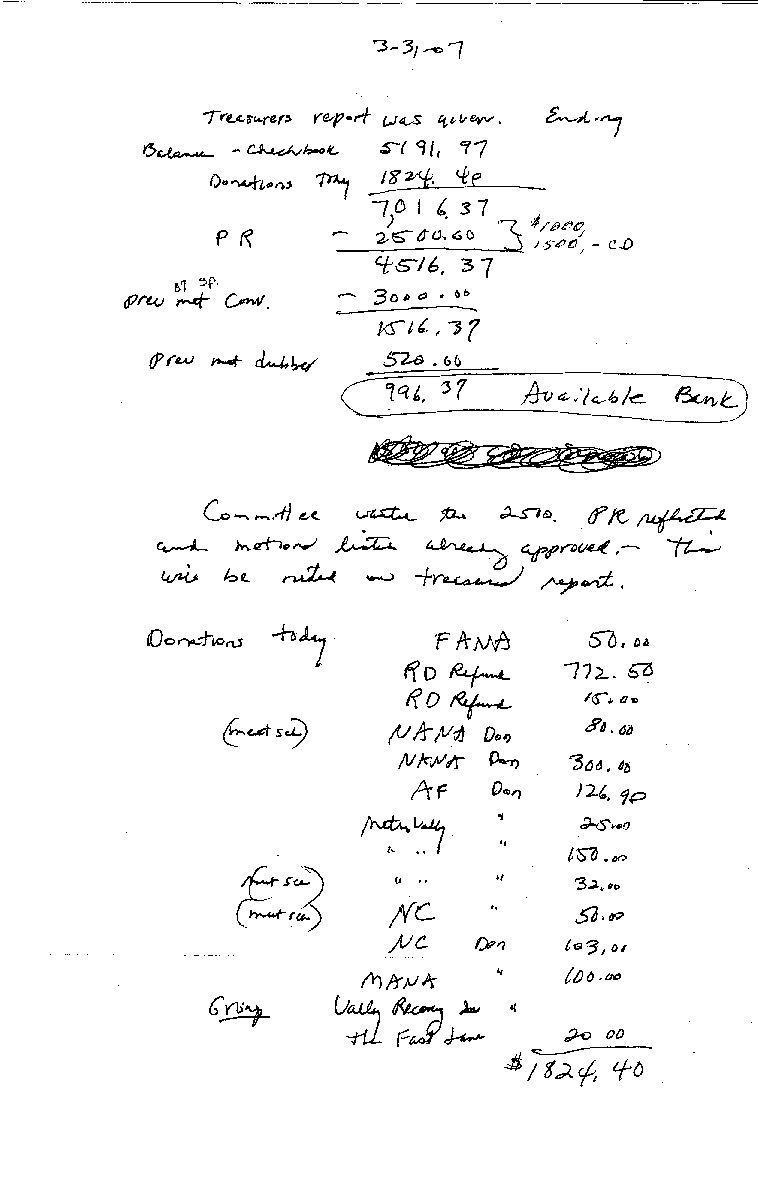 3-31-07
Treasurers report was given. Ending
Balance - Checkbook 5191.97
Donations Today 1824.40
7,016.37
PR - 2500.00 } $1000, 1500, - CD
4516.37
BY SP.
Prev mot Conv. - 3000.00
1516.37
Prev mot dubber 520.00
996.37 Available Bank
Committee wants the 2500. PR reflected
and motions listed already approved. - This
will be noted on treasurer report.
Donations today. FANA 50.00
RD Refund 772.50
RD Refund 15.00
(meet scl) NANA Don 80.00
NANA Don 300.00
AF Don 126.90
Metro Vally " 25.00
" " " 150.00
(meet scl) " " " 32.00
(meet scl) NC " 50.00
NC Don 103.00
MANA " 100.00
Group Vally Recovery In "
the Fast Lane 20 00
$1824.40